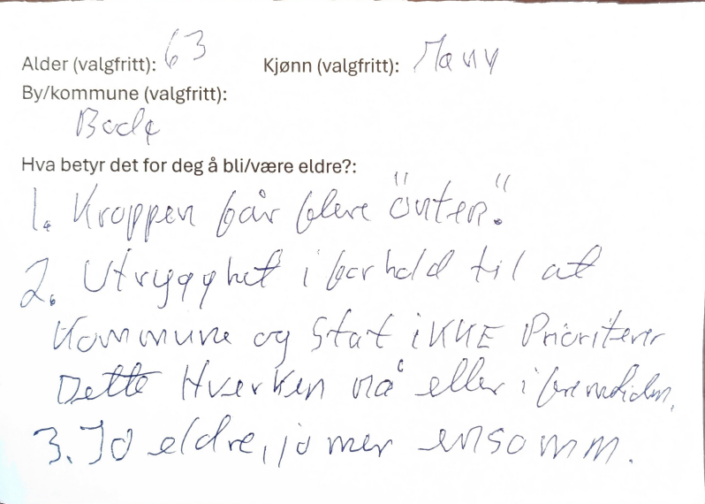 Alder (valgfritt): 63 Kjønn (valgfritt): Mann
By/kommune (valgfritt):
Bodø
Hva betyr det for deg å bli/være eldre?:
1. Kroppen får flere "önten".
2. Utrygghet i forhold til at
Kommune og Stat iKKE Prioriterer
Dette Hverken nå eller i fremtiden.
3. Jo eldre, jo mer ensomm.